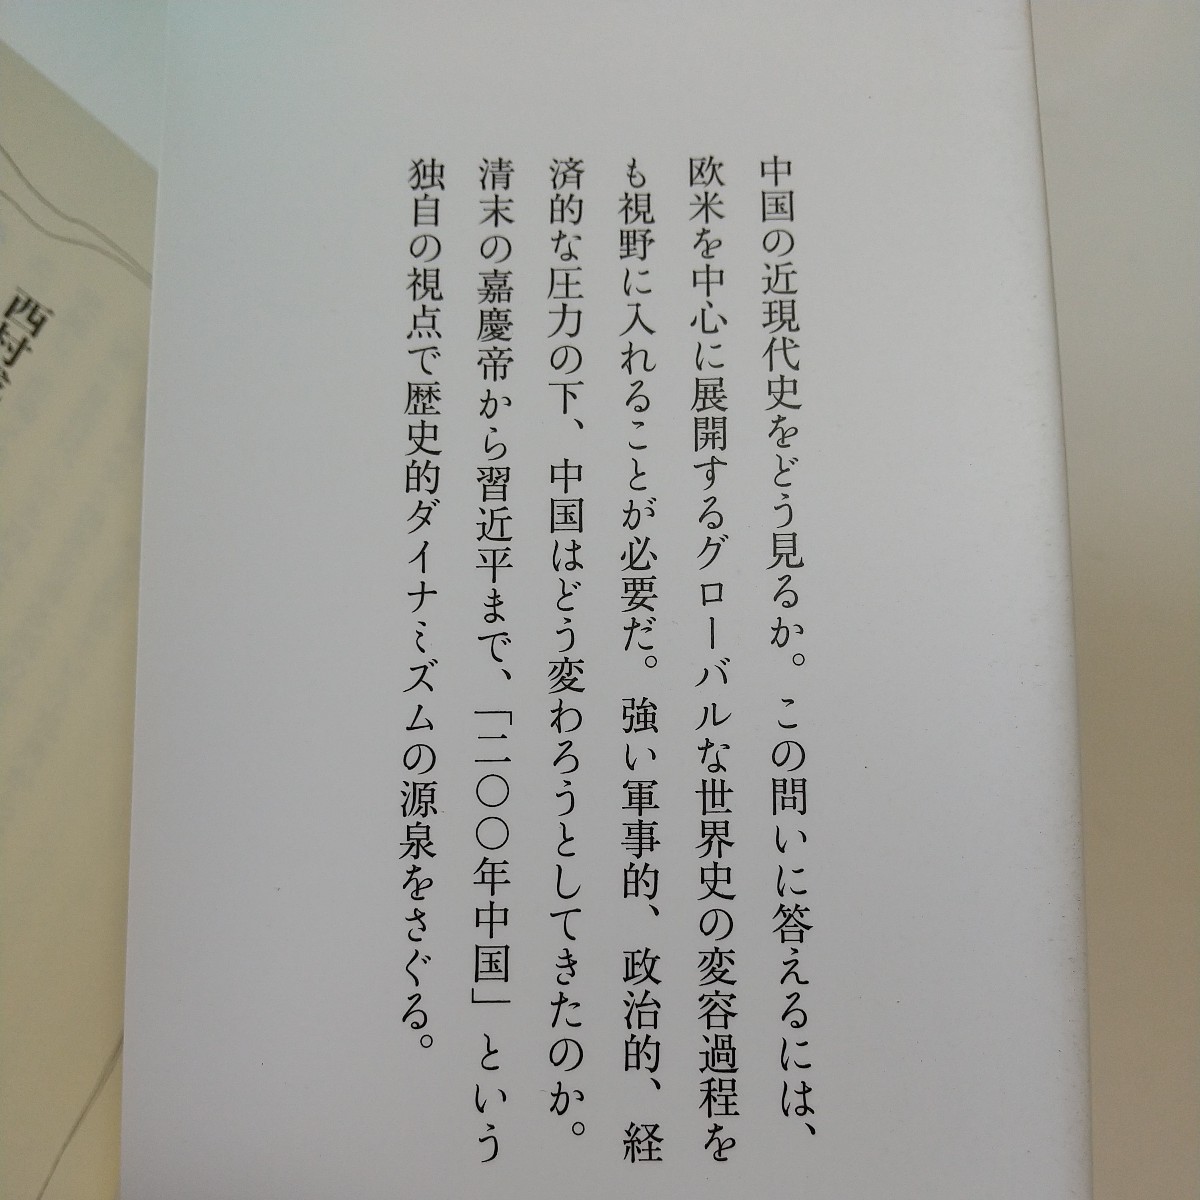 中国の近現代史をどう見るか。この問いに答えるには、
欧米を中心に展開するグローバルな世界史の変容過程を
も視野に入れることが必要だ。強い軍事的、政治的、経
済的な圧力の下、中国はどう変わろうとしてきたのか。
清末の嘉慶帝から習近平まで、「二〇〇年中国」という
独自の視点で歴史的ダイナミズムの源泉をさぐる。
西村